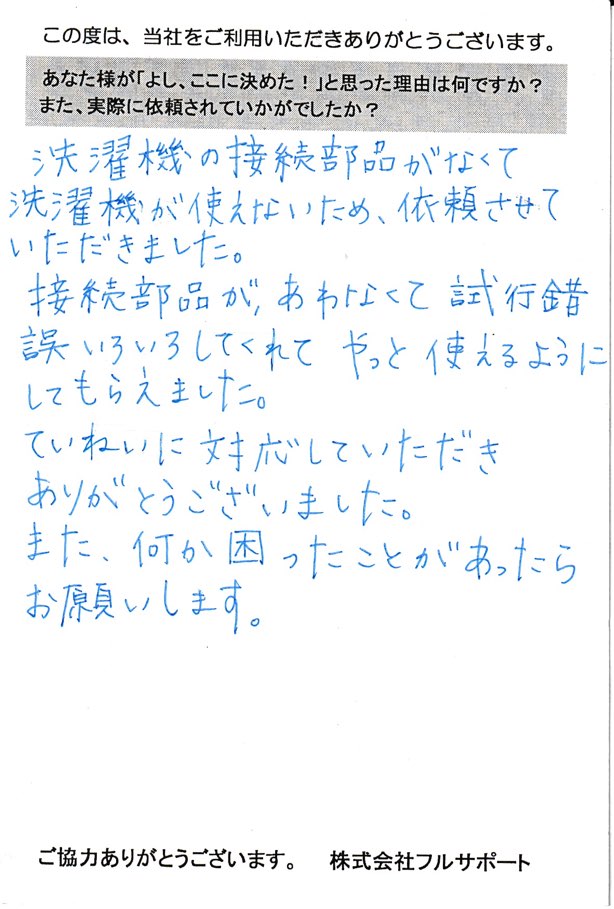 この度は、当社をご利用いただきありがとうございます。
あなた様が「よし、ここに決めた！」と思った理由は何ですか？
また、実際に依頼されていかがでしたか？
洗濯機の接続部品がなくて
洗濯機が使えないため、依頼させて
いただきました。
接続部品が、あわなくて試行錯
誤いろいろしてくれて やっと使えるように
してもらえました。
ていねいに対応していただき
ありがとうございました。
また、何か困ったことがあったら
お願いします。
ご協力ありがとうございます。 株式会社フルサポート